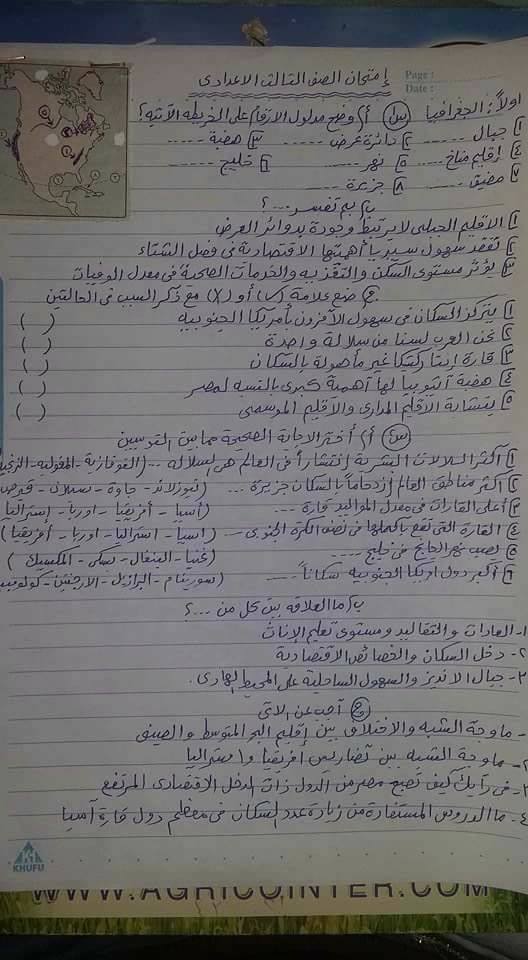 إمتحان الصف الثالث الاعدادى
Page :
Date :
اولاً : الجغرافيا س١ أ) وضح مدلول الارقام على الخريطه الآتيه ؟
١ جبال ...... ٢ دائرة عرض ...... ٣ هضبة ......
٤ إقليم مناخ ..... ٥ نهر ..... ٦ خليج .....
٧ مضيق ..... ٨ جزيرة .....
ب) بم تفسر ... ؟
١ الاقليم الجبلى لا يرتبط وجودة بدوائر العرض
٢ تفقد سهول سيبريا أهميتها الاقتصادية فى فصل الشتاء
٣ يؤثر مستوى السكن والتغذيه والخدمات الصحية فى معدل الوفيات
ج) ضع علامة (✓) أو (X) مع ذكر السبب فى الحالتين
١ يتركز السكان فى سهول الأمزون بأمريكا الجنوبيه ( )
٢ نحن العرب لسنا من سلالة واحدة ( )
٣ قارة إنتاركتيكا غير مأهولة بالسكان ( )
٤ هضبة أثيوبيا لها أهمية كبرى بالنسبه لمصر ( )
٥ يتشابة الاقليم المدارى والاقليم الموسمى ( )
س٢ أ) أختر الاجابة الصحيحة مما بين القوسين
١ أكثر السلالات البشرية إنتشاراً فى العالم هى السلاله ... (القوقازية - المغولية - الزنجية
٢ أكثر مناطق العالم إزدحاماً بالسكان جزيرة ... (نيوزلاند - جاوة - سيلان - قبرص
٣ أعلى القارات فى معدل المواليد قارة .... (أسيا - أفريقيا - اوربا - إستراليا
٤ القارة التى تقع بأكملها فى نصف الكرة الجنوبى ... (اسيا - استراليا - اوربا - أفريقيا)
٥ يصب نهر الجانج فى خليج ---- (غنيا - البنغال - بسكى - المكسيك )
٦ أكبر دول امريكا الجنوبيه سكاناً ... (سورينام - البرازيل - الارجنتين - كولومبيا
ب) ما العلاقه بين كل من ... ؟
١- العادات والتقاليد ومستوى تعليم الإناث
٢- دخل السكان والخصائص الاقتصادية
٣- جبال الانديز والسهول الساحلية على المحيط الهادى .
ج) أجب عن الاتى
- ما وجة الشبه والاختلاف بين إقليم البحر المتوسط والصينى
٢- ما وجة الشبه بين تضاريس افريقيا واستراليا
٣- فى رأيك كيف تصبح مصر من الدول ذات الدخل الاقتصادى المرتفع
٤- ما الدروس المستفادة من زيادة عدد السكان فى معظم دول قارة آسيا
KHUFU
WWW.AGRICOINTER.COM